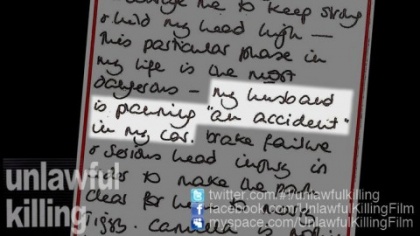 me to keep strong
& hold my head high —
this particular phase in
my life is the most
dangerous — my husband
is planning "an accident"
in my car. brake failure
& serious head injury in
to make the path
clear for
Tiggy.
unlawful
killing
twitter.com/#!/unlawfulkilling
facebook.com/UnlawfulKillingFilm
myspace.com/UnlawfulKillingFilm